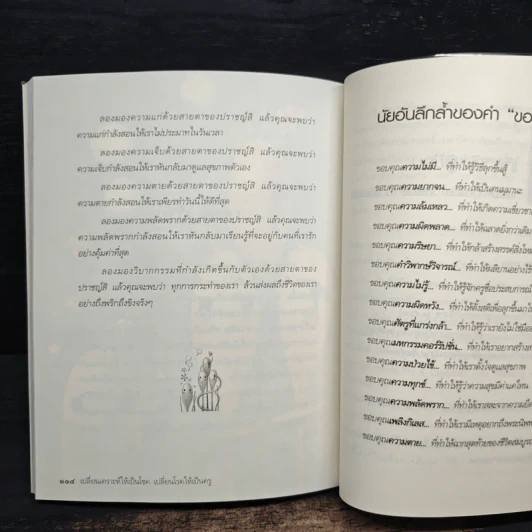 ลองมองความแก่ด้วยสายตาของปราชญ์สิ แล้วคุณจะพบว่า
ความแก่กำลังสอนให้เราไม่ประมาทในวันเวลา
ลองมองความเจ็บด้วยสายตาของปราชญ์สิ แล้วคุณจะพบว่า
ความเจ็บกำลังสอนให้เราหันกลับมาดูแลสุขภาพตัวเอง
ลองมองความตายด้วยสายตาของปราชญ์สิ แล้วคุณจะพบว่า
ความตายกำลังสอนให้เราเพียรทำวันนี้ให้ดีที่สุด
ลองมองความพลัดพรากด้วยสายตาของปราชญ์สิ แล้วคุณจะพบว่า
ความพลัดพรากกำลังสอนให้เราหันกลับมาเรียนรู้ที่จะอยู่กับคนที่เรารัก
อย่างคุ้มค่าที่สุด
ลองมองวิบากกรรมที่กำลังเกิดขึ้นกับตัวเองด้วยสายตาของ
ปราชญ์สิ แล้วคุณจะพบว่า ทุกการกระทำของเรา ล้วนส่งผลถึงชีวิตของเรา
อย่างถึงพริกถึงขิงจริงๆ
๑๑๔ เปลี่ยนเคราะห์ให้เป็นโชค เปลี่ยนโรคให้เป็นครู
นัยอันลึกล้ำของคำ "ขอ
ขอบคุณความไม่มี... ที่ทำให้รู้วิธีลุกขึ้นสู้
ขอบคุณความยากจน... ที่ทำให้เป็นคนมุมานะ
ขอบคุณความล้มเหลว... ที่ทำให้เกิดความเชี่ยวชา
ขอบคุณความผิดพลาด... ที่ทำให้ฉลาดยิ่งกว่าเดิม
ขอบคุณความริษยา... ที่ทำให้กล้าสร้างสรรค์สิ่งใหม
ขอบคุณคำวิพากษ์วิจารณ์... ที่ทำให้เสียบานอย่างไร้
ขอบคุณความไม่รู้... ที่ทำให้รู้จักครูชื่อประสบการณ์
ขอบคุณความผิดหวัง... ที่ทำให้ตั้งสติเพื่อลุกขึ้นมาใ
ขอบคุณศัตรูที่แกร่งกล้า... ที่ทำให้รู้ว่าเรายังไม่ใช่มือ
ขอบคุณมหกรรมคอร์รัปชั่น... ที่ทำให้เราอยากสร้างส
ขอบคุณความป่วยไข้... ที่ทำให้เราตั้งใจดูแลสุขภาพ
ขอบคุณความทุกข์... ที่ทำให้รู้ว่าความสุขมีค่าแค่ไหน
ขอบคุณความพลัดพราก... ที่ทำให้เราสละจากความยึด
ขอบคุณเพลิงกิเลส... ที่ทำให้เรามีเหตุอยากถึงพระนิพพ
ขอบคุณความตาย... ที่ทำให้ฉากสุดท้ายของชีวิตสมบูรณ